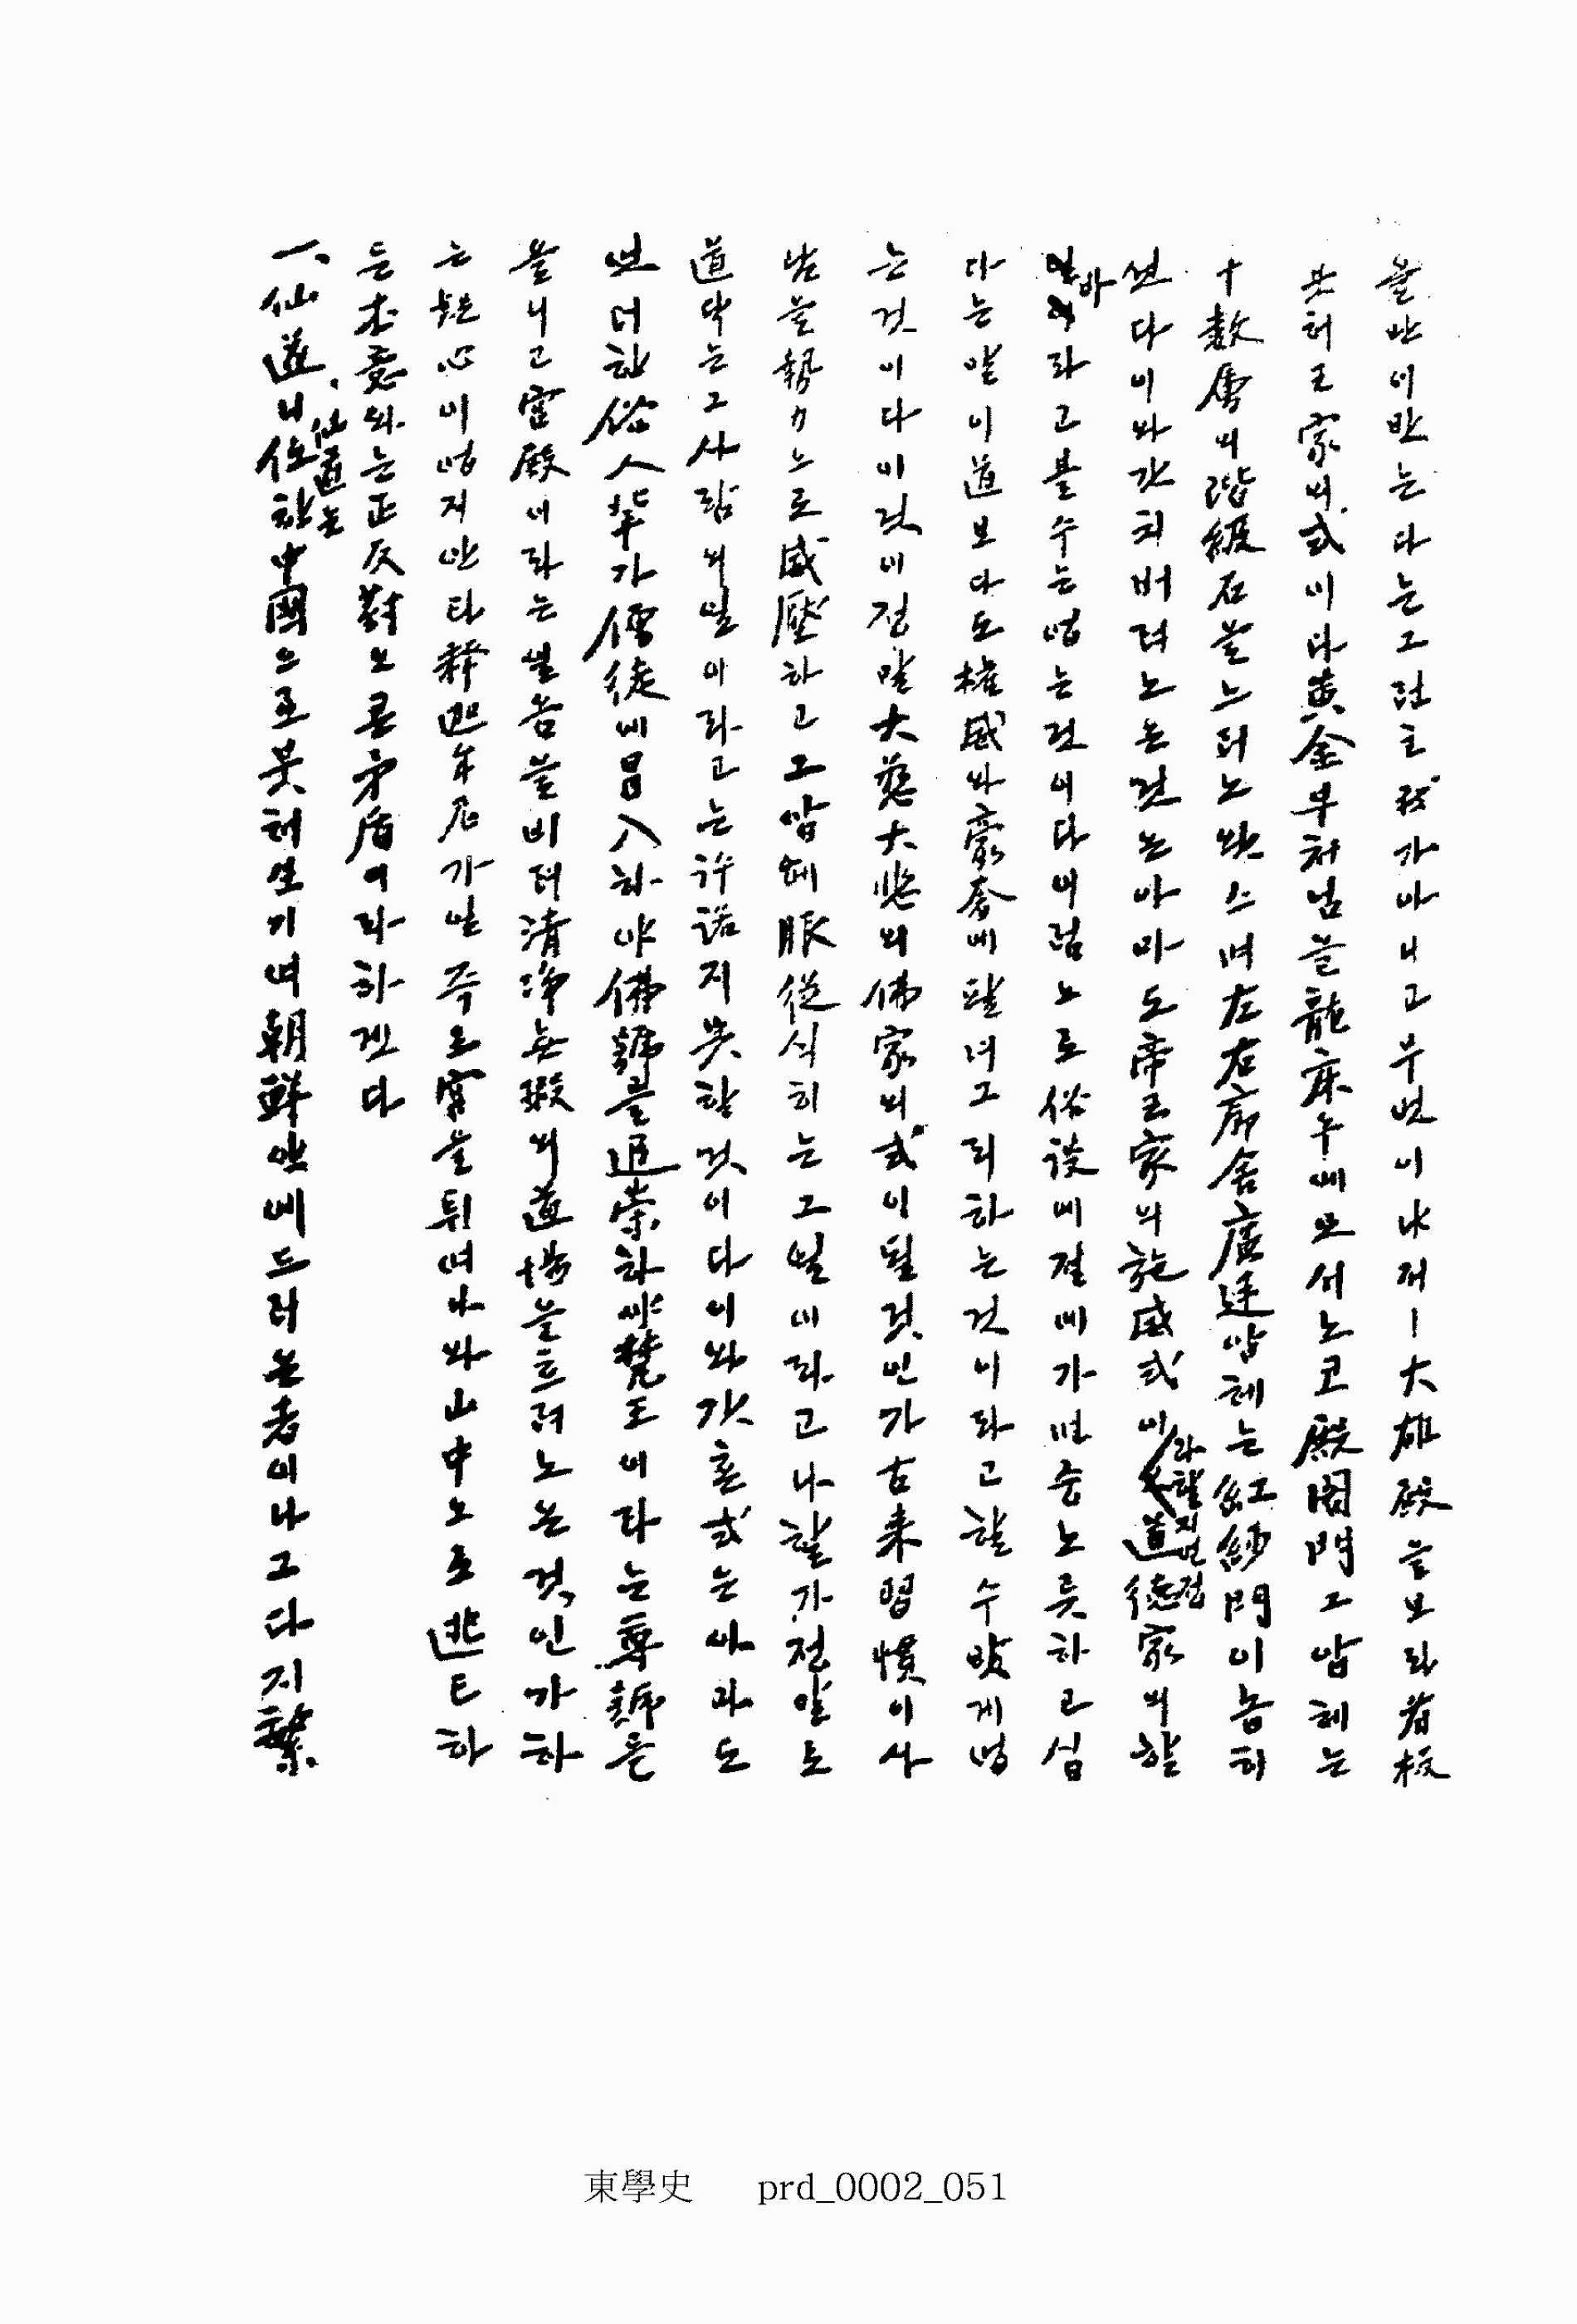 을만이밧는다는그런主張가아니고무엇이냐저ㅣ大雄殿을보라若板
붓허王家의式이다黃金부처님을龍床우에모서노코殿閣門그압헤는
十數層의階級石을느러노핫스며左右廊舍庭압헤는紅紗門이놉히
섯다이와갓치버려노는것는아마도帝王家의施威式이라할지언정道德家의할
일바라고볼수는업는것이다이럼노로俗談에절에가면중노릇하고십
다는말이道보다도權威와豪奢에팔녀그리하는것이라고할수밧게업
는것이다이것이정말大慈大悲의佛家의式이될것인가古來習慣이사
남을勢力느로威壓하고그압헤服從식히는그일이라고나할가정말노
道닥는그사람의일이라고는許諾지못할것이다이와갓흔式는아과도
엿더한俗人輩가儒徒에冒入하야佛號를追崇하야梵王이라는尊號을
을니고宮殿이라는일흠을비저淸淨無瑕의道場을흐려노는것인가하
는疑心이업지안타釋迦牟尼가일즉王宮을뛰여나와山中노逃亡하
든本意와는正反對노큰矛盾이라하겟다
一、仙道、仙道는니位한中國으로붓허生기여朝鮮안에드러온者이나그다지繁
東學史 prd_0002_051